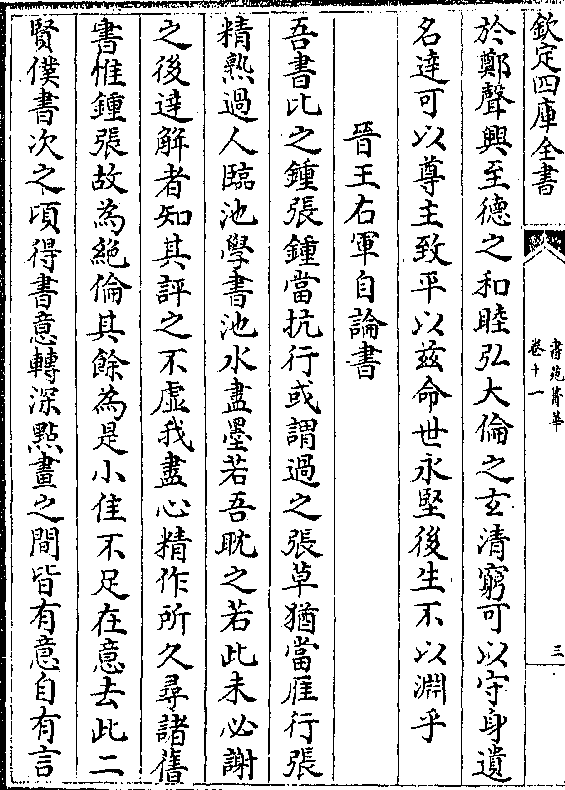 欽定四庫全書
書苑菁華
卷十一
三
於鄭聲興至德之和睦弘大倫之玄清窮可以守身遺
名達可以尊主致平以兹命世永堅後生不以淵乎
晉王右軍自論書
吾書比之鍾張鍾當抗行或謂過之張草猶當雁行張
精熟過人臨池學書池水盡墨若吾耽之若此未必謝
之後達解者知其評之不虛我盡心精作所久尋諸舊
書惟鍾張故為絕倫其餘為是小佳不足在意去此二
賢僕書次之頃得書意轉深點畫之間皆有意自有言